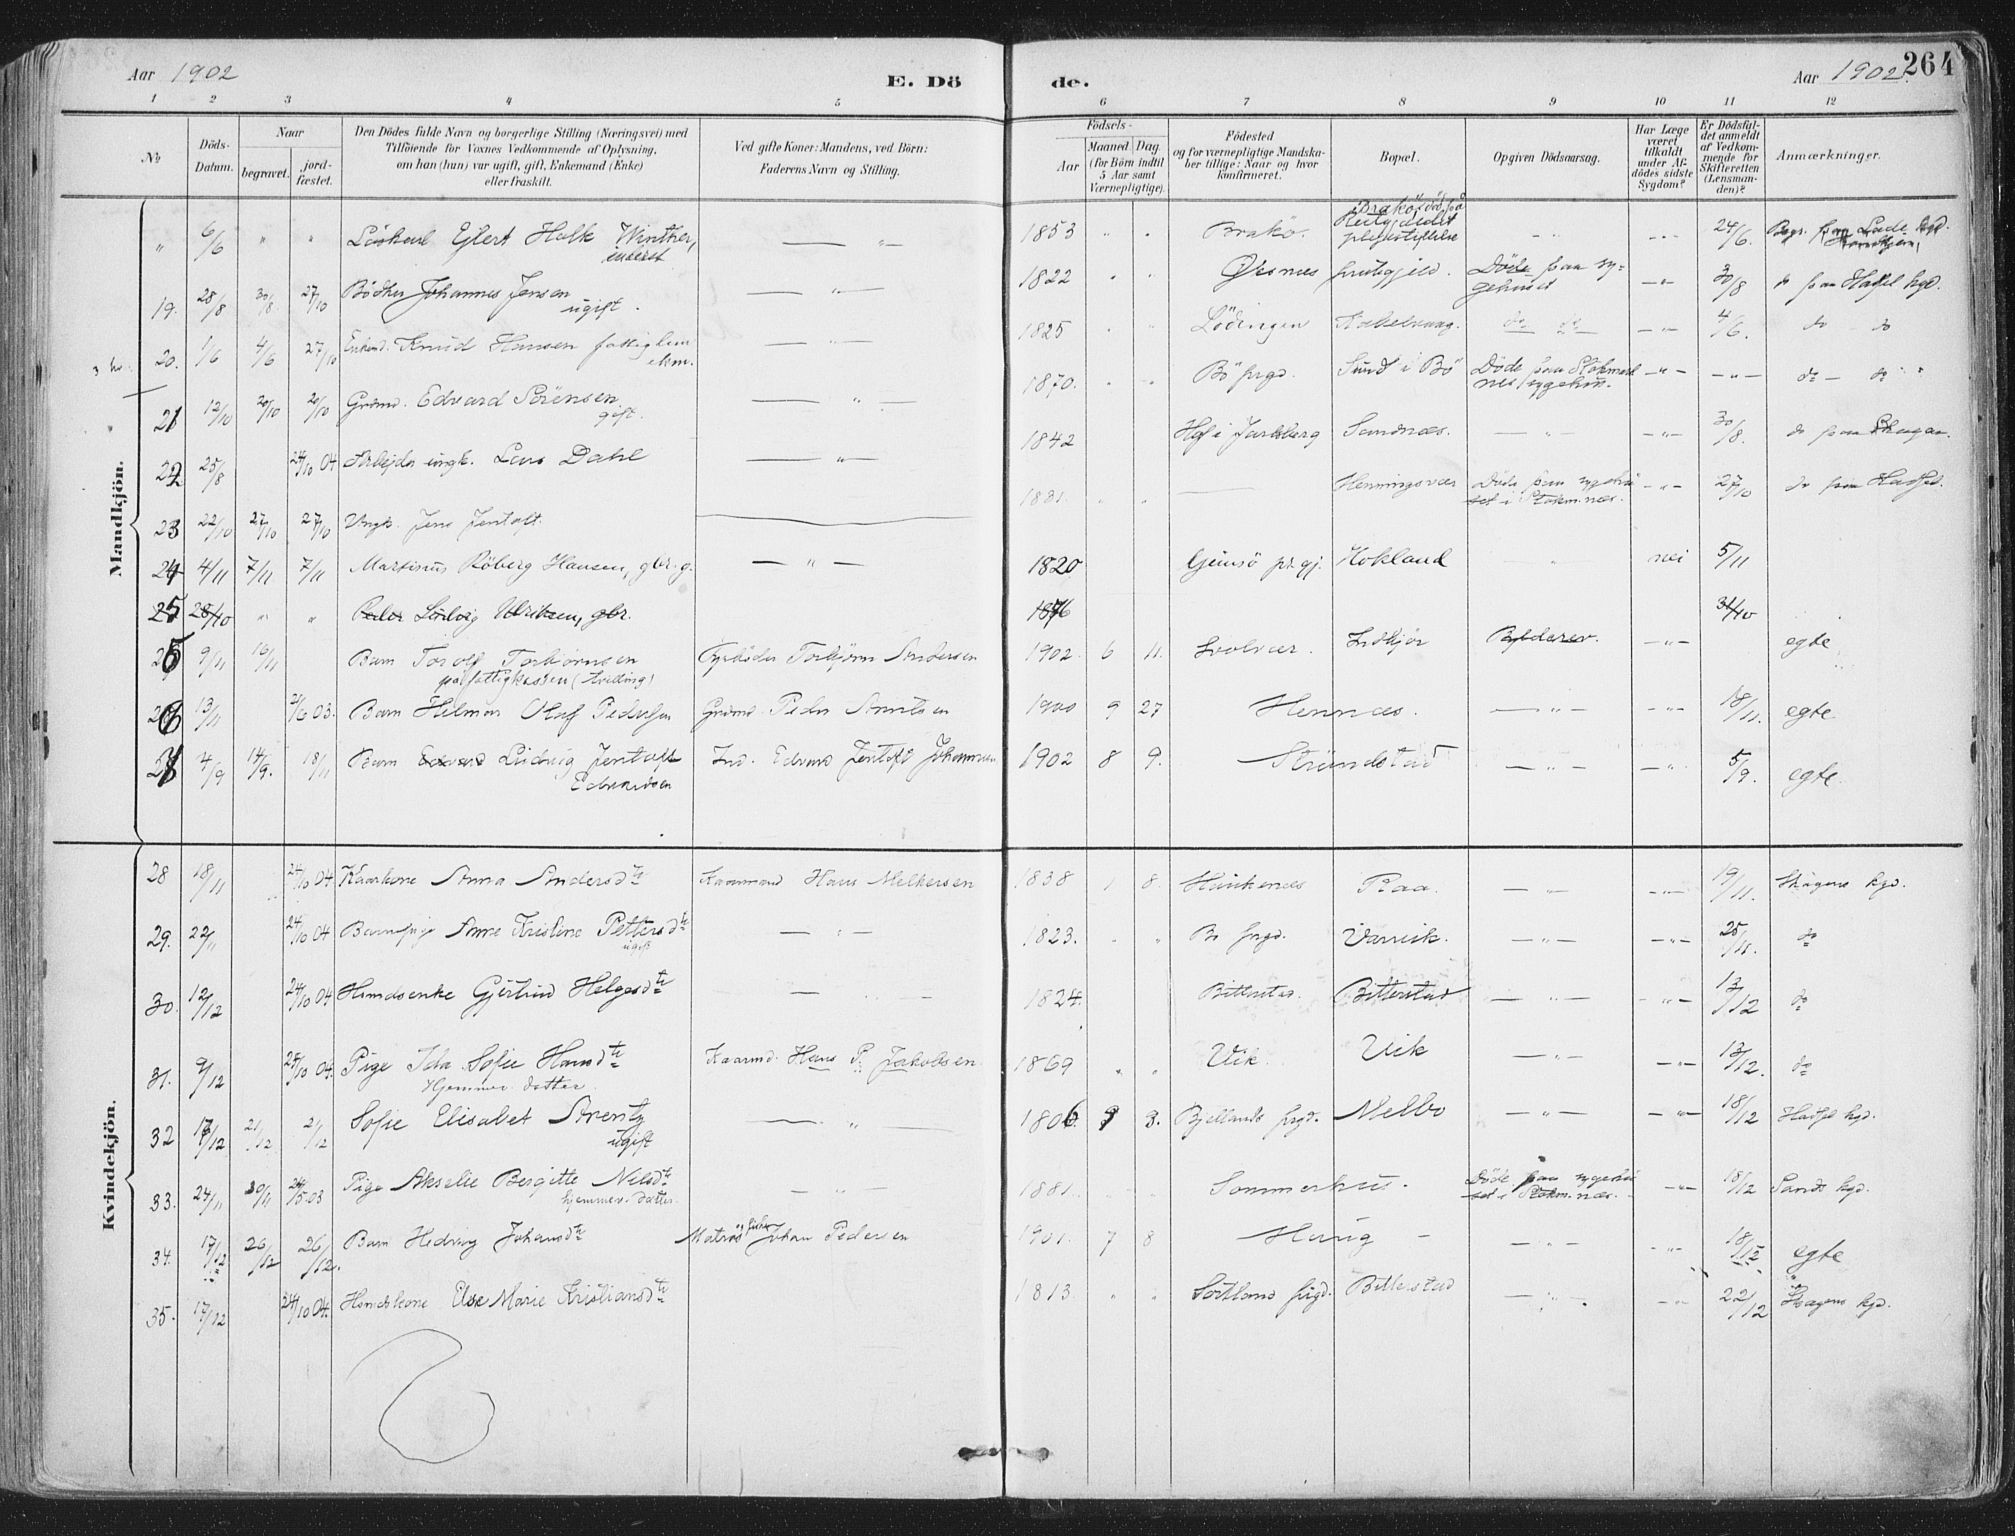 Aar 1902
E. Dö
de.
Aar 1902.
264
1 2 3 4 5 6 7 8 9 10 11 12
No
Döds-
Datum.
Naar
begravet.
jord-
fæstet.
Den Dödes fulde Navn og borgerlige Stilling (Næringsvei) med
Tilföiende for Voxnes Vedkommende af Oplysning,
om han (hun) var ugift, gift, Enkemand (Enke)
eller fraskilt.
Ved gifte Koner: Mandens, ved Börn:
Faderens Navn og Stilling.
Födsels-
Aar
Maaned Dag
(for Börn indtil
5 Aar samt
Værnepligtige).
Födested
og for værnepligtige Mandska-
ber tillige: Naar og hvor
konfirmeret.
Bopæl.
Opgiven Dödsaarsag.
Har Læge
været
tilkaldt
under Af-
dödes sidste
Sygdom?
Er Dödsfal-
det anmeldt
af Vedkom-
mende for
Skifteretten
(Lensman-
den)?
Anmærkninger.
Mandkjön.
" 6/6 " " Eilert Holk Winther, 1853 " " Brakö. 24/6. Begr. paa Lade kgd.
19. 28/8 30/8 27/10 Bödker Johannes Jensen 1822 " " Öksnes prestegjeld. Döde paa sy- 30/8 do paa Hadsel kgd.
ugift. gehuset
20. 1/6 4/6 27/10 Enkemd. Knud Hansen fattiglem 1825 " " Lödingen Kabelvaag. do do 4/6. do do
21 12/10 20/10 20/10 Grdmd. Edvard Sörensen 1870. " " Bö prgd. Sund i Bö Döde paa Stokmark
gift. nes sygehus. do do
22 25/8 24/10 04 Arbejder ungk. Lars Dahl 1842 Hof i Jarlsberg Sandnæs. 30/8. do paa Skagen.
23 22/10 27/10 27/10 Ungk. Jens Jentoft 1831. " " Henningsvær Döde paa sygehu
set i Stokm.næs. 27/10 do paa Hadsel.
24 4/11 7/11 7/11 Martinus Röberg Hansen, gbr. 1820 Gimsö pr.gj. Hokland nei 5/11
25 28/10 " " Peder Ludvig Ulriksen, gbr. 1876 31/10
25 9/11 16/11 Barn Torolf Torbjörnsen Fyrböder Torbjörn Andersen 1902. 6 11. Svolvær. egte
paa fattigkassen (tvilling)
26 13/11 2/6 03. Barn Hilmar Olaf Pedersen Grdmd. Peder Arntsen 1900 9 27 Hennæs. 18/11. egte
27 4/9 14/9. 18/11 Barn Edvard Ludvig Jentoft Ind. Edvard Jentoft Johannesen 1902 8 9. Strandstad 5/9. egte
Edvardsen
Kvindekjön.
28 18/11 24/10 04 Kaarkone Anna Andersdtr Kaarmand Hans Melkersen 1838 1 8. Haukenes Raa. 19/11. Skagens kgd.
29. 22/11 24/10 04 Barnepige Anne Kristine Pettersdtr 1823. " " Bö prgd. Varvik. 25/11. do
ugift
30. 12/12 24/10 04 Hmdsenke Gjertrud Helgesdtr 1824. Bitterstad. Bitterstad 13/12 do
31. 9/12 24/10 04. Pige Ida Sofie Hansdtr Kaarmd. Hans P. Jakobsen. 1869 " " Vik. Vik 13/12. do
Hjemmev. datter.
32 17/12 21/12 21/12 Sofie Elisabet Arentz 1806. 9 3. Bjellands prgd. Melbo 18/12 Hadsel kgd.
ugift
33. 24/11 30/11 24/5.03 Pige Akselie Bergitte Nilsdtr 1881. Sommerhus. Döde paa sygehu 18/12 Sands kgd.
hjemmev. datter. set i Stokm.næs.
34. 17/12 26/12 26/12. Barn Hedvig Johansdtr Matros og fisker Johan Pedersen 1901. 7 8 Haug 18/12 egte
35. 17/12 24/10 04. Hmdskone Else Marie Kristiansdtr 1813. " " Sortland prgd. Bitterstad 22/12 Skagens kgd.